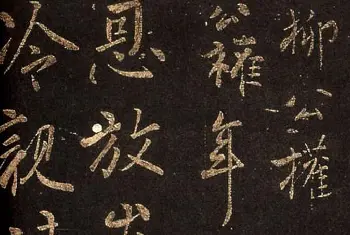 柳公權
公權年
恩放出
冷親